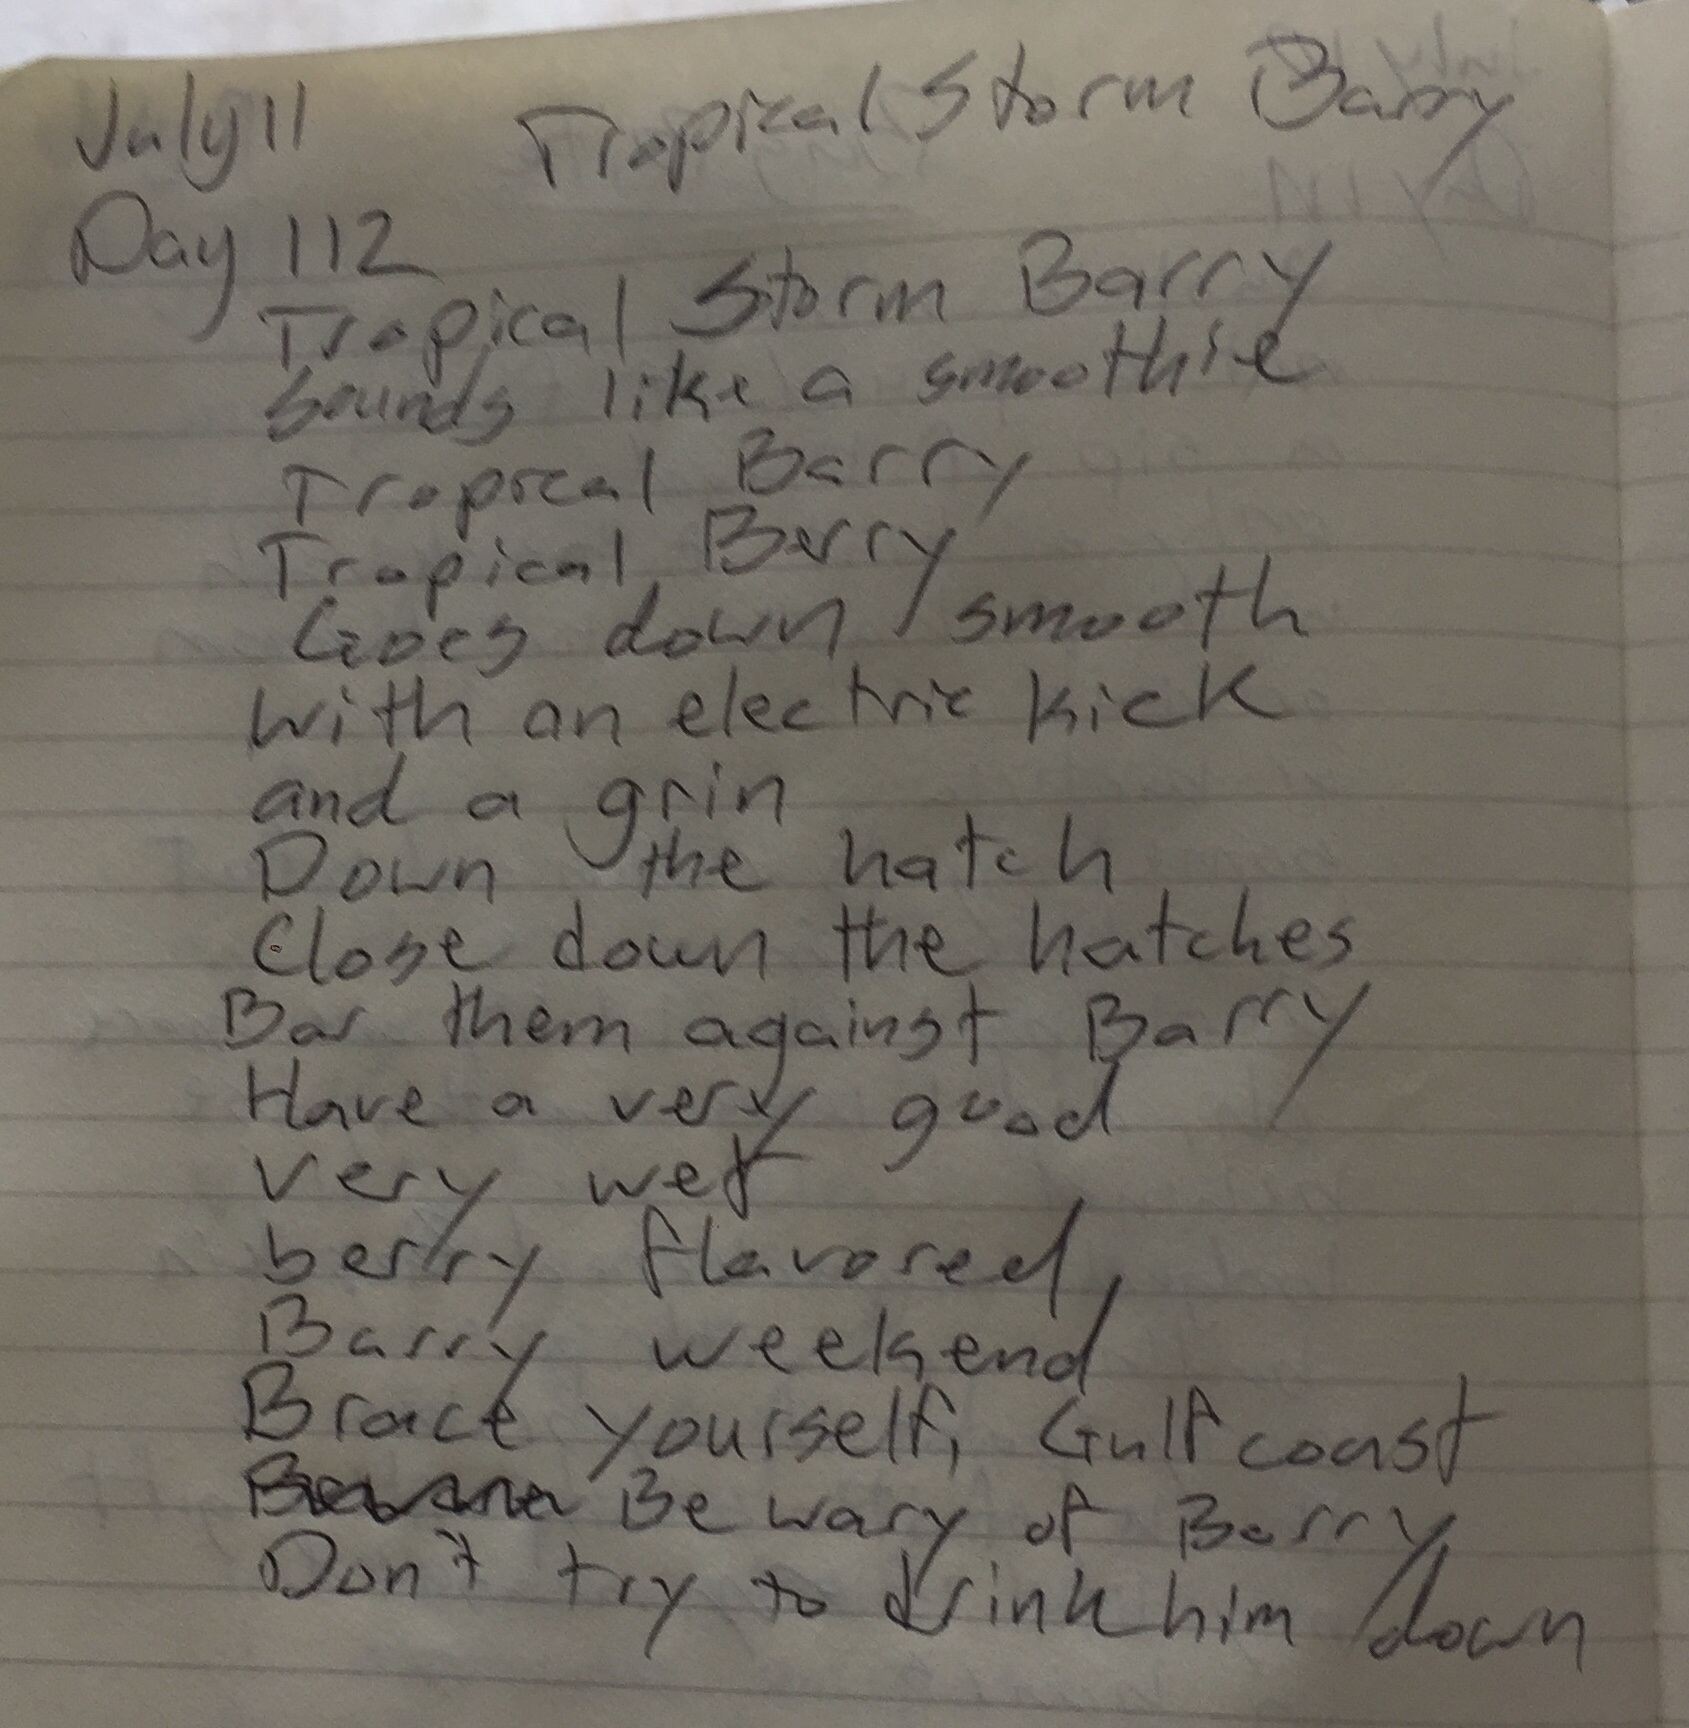 July 11 Tropical Storm Barry
Day 112
Tropical Storm Barry
Sounds like a smoothie
Tropical Barry
Tropical Berry
Goes down smooth
With an electric kick
and a grin
Down the hatch
Close down the hatches
Bar them against Barry
Have a very good
very wet
berry flavored,
Barry weekend
Brace yourself, Gulf coast
Be wary of Barry
Don't try to drink him down